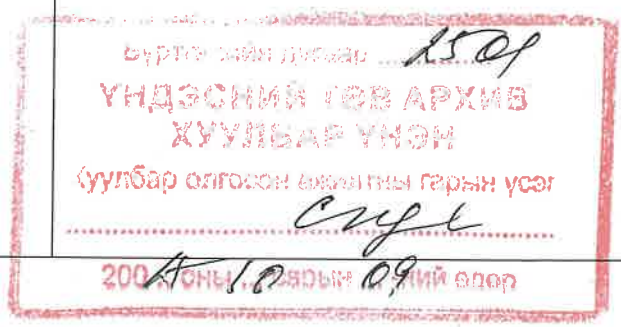 Бүртгэлийн дугаар ........ 2501
ҮНДЭСНИЙ ТӨВ АРХИВ
ХУУЛБАР ҮНЭН
Хуулбар олгосон ажилтны гарын үсэг
200 оны 10 сарын 09 ний өдөр